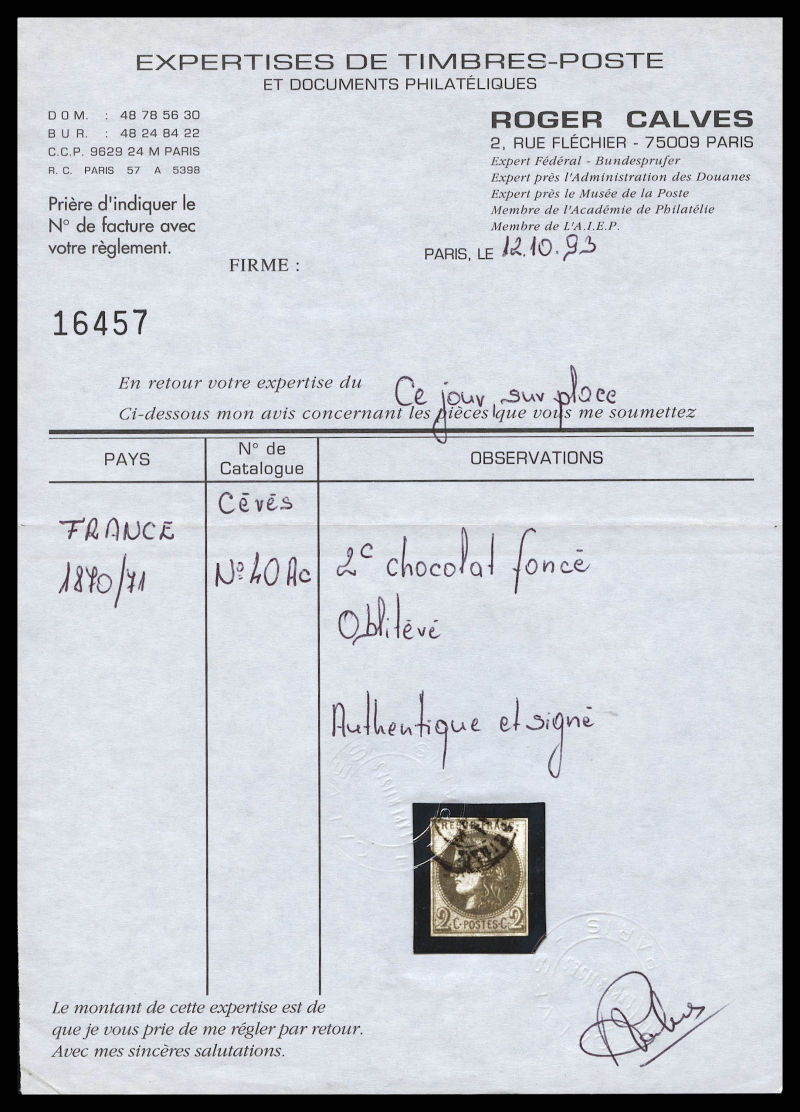 EXPERTISES DE TIMBRES-POSTE
ET DOCUMENTS PHILATÉLIQUES
DOM. : 48 78 56 30
BUR. : 48 24 84 22
C.C.P. 9629 24 M PARIS
R. C. PARIS 57 A 5398
ROGER CALVES
2, RUE FLÉCHIER - 75009 PARIS
Expert Fédéral - Bundesprufer
Expert près l'Administration des Douanes
Expert près le Musée de la Poste
Membre de l'Académie de Philatélie
Membre de L'A.I.E.P.
Prière d'indiquer le
N° de facture avec
votre règlement.
PARIS, LE 12.10.93
FIRME :
16457
En retour votre expertise du Ce jour, sur place
Ci-dessous mon avis concernant les pièces que vous me soumettez
PAYS N° de Catalogue OBSERVATIONS
Cérès
FRANCE
1870/71 N° 40 Ac 2c chocolat foncé
Oblitéré
Authentique et signé
REPUB. FRANC.
2 C. POSTES C. 2
PARIS
Le montant de cette expertise est de
que je vous prie de me régler par retour.
Avec mes sincères salutations.
Calves